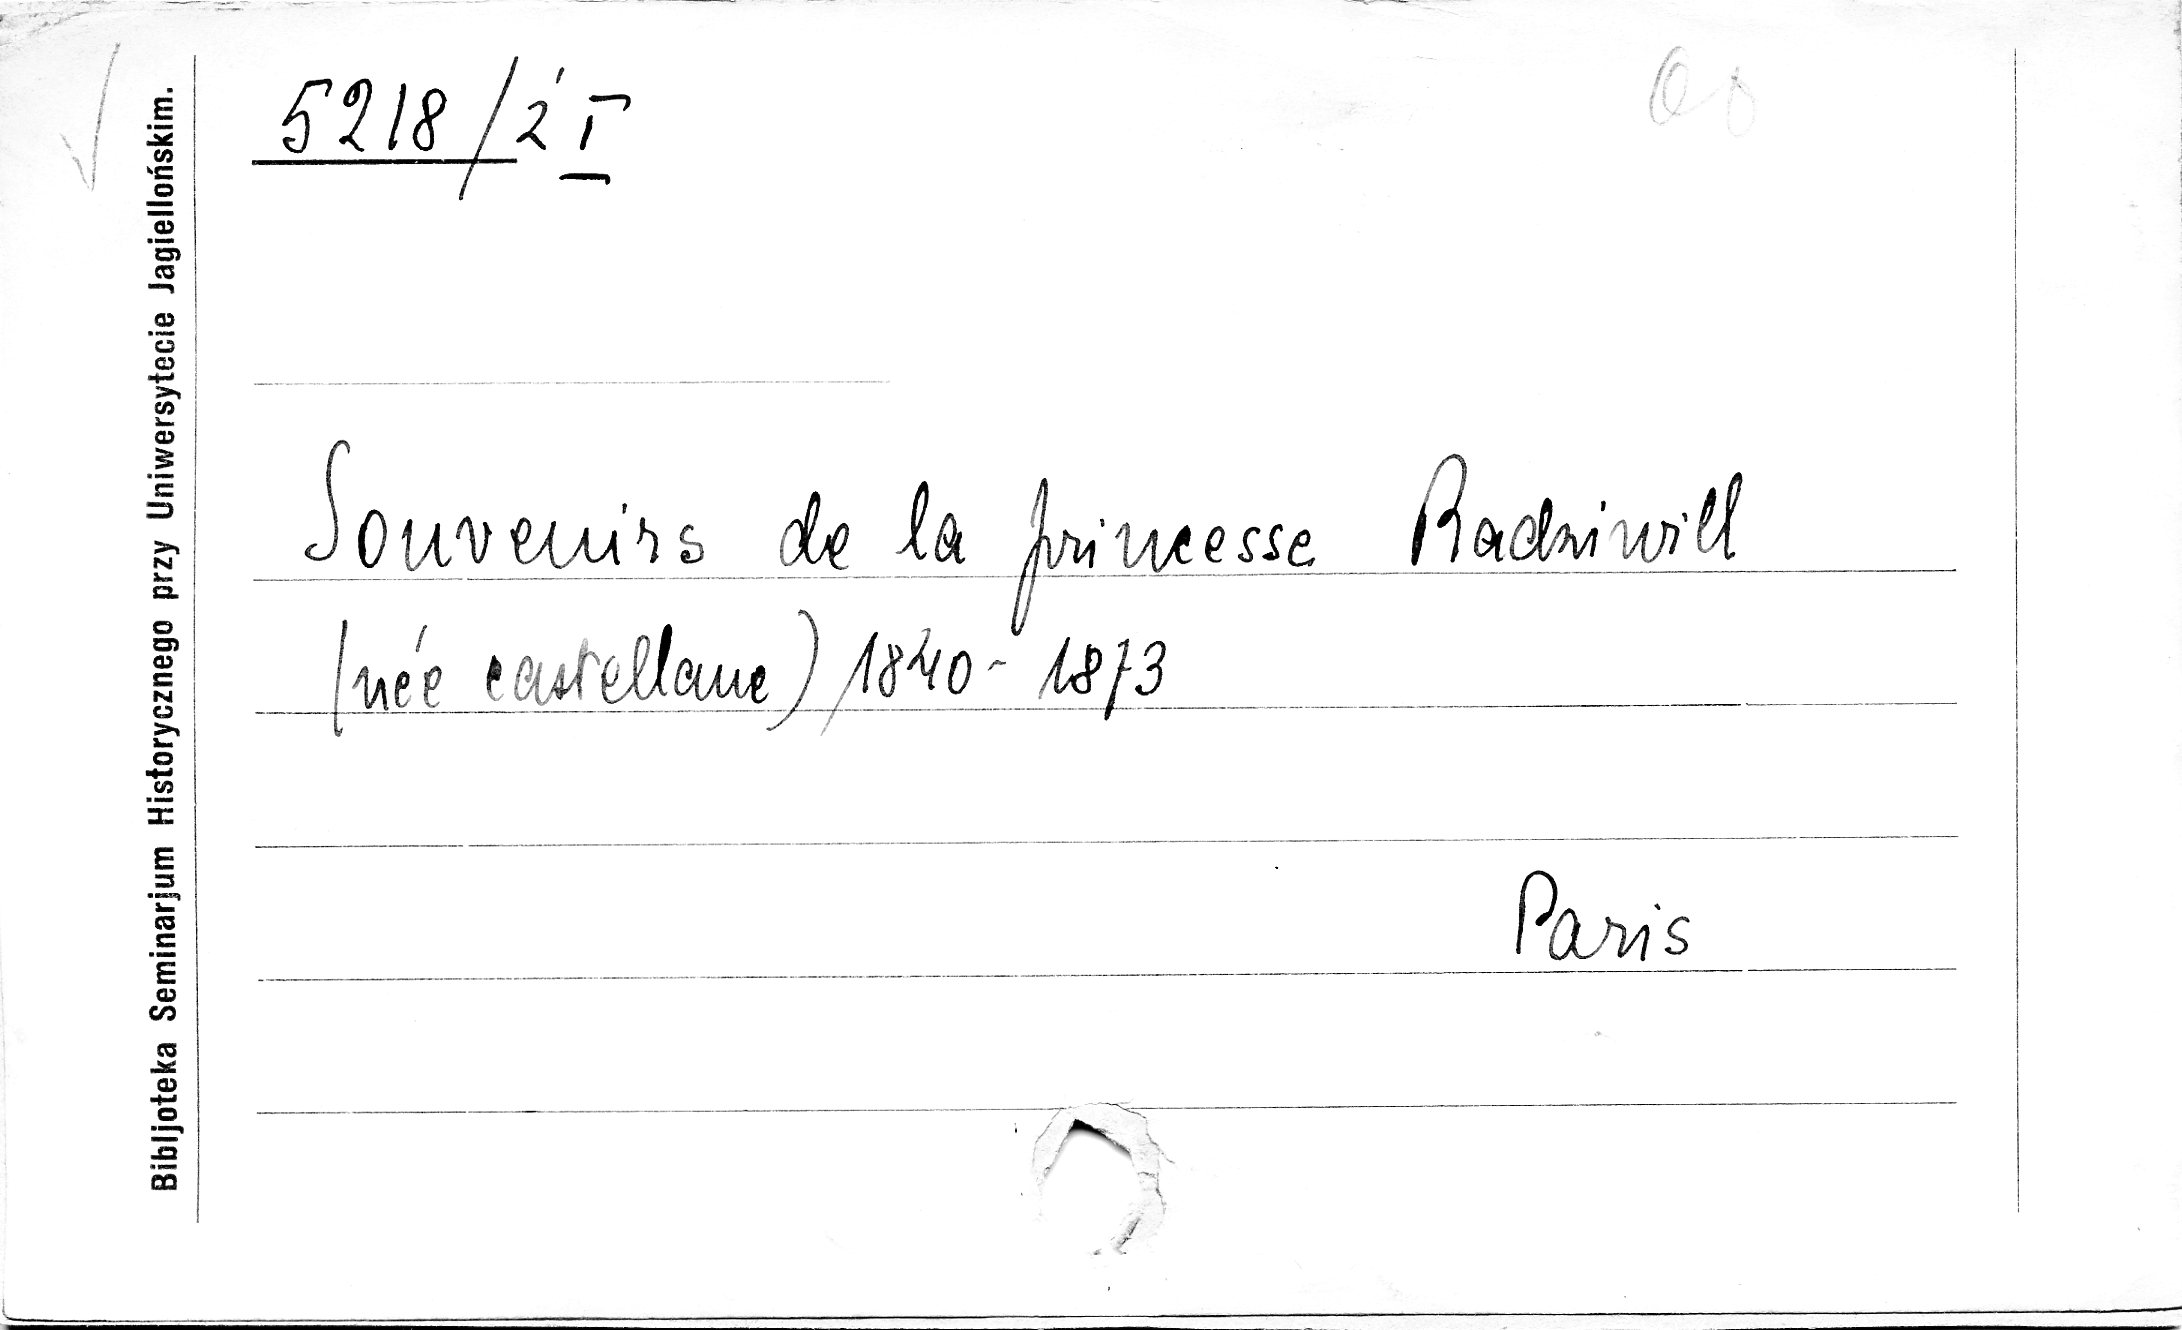 5218/2 I
Souvenirs de la princesse Radziwill
(née castellane) 1840-1873
Paris
Bibljoteka Seminarjum Historycznego przy Uniwersytecie Jagiellońskim.